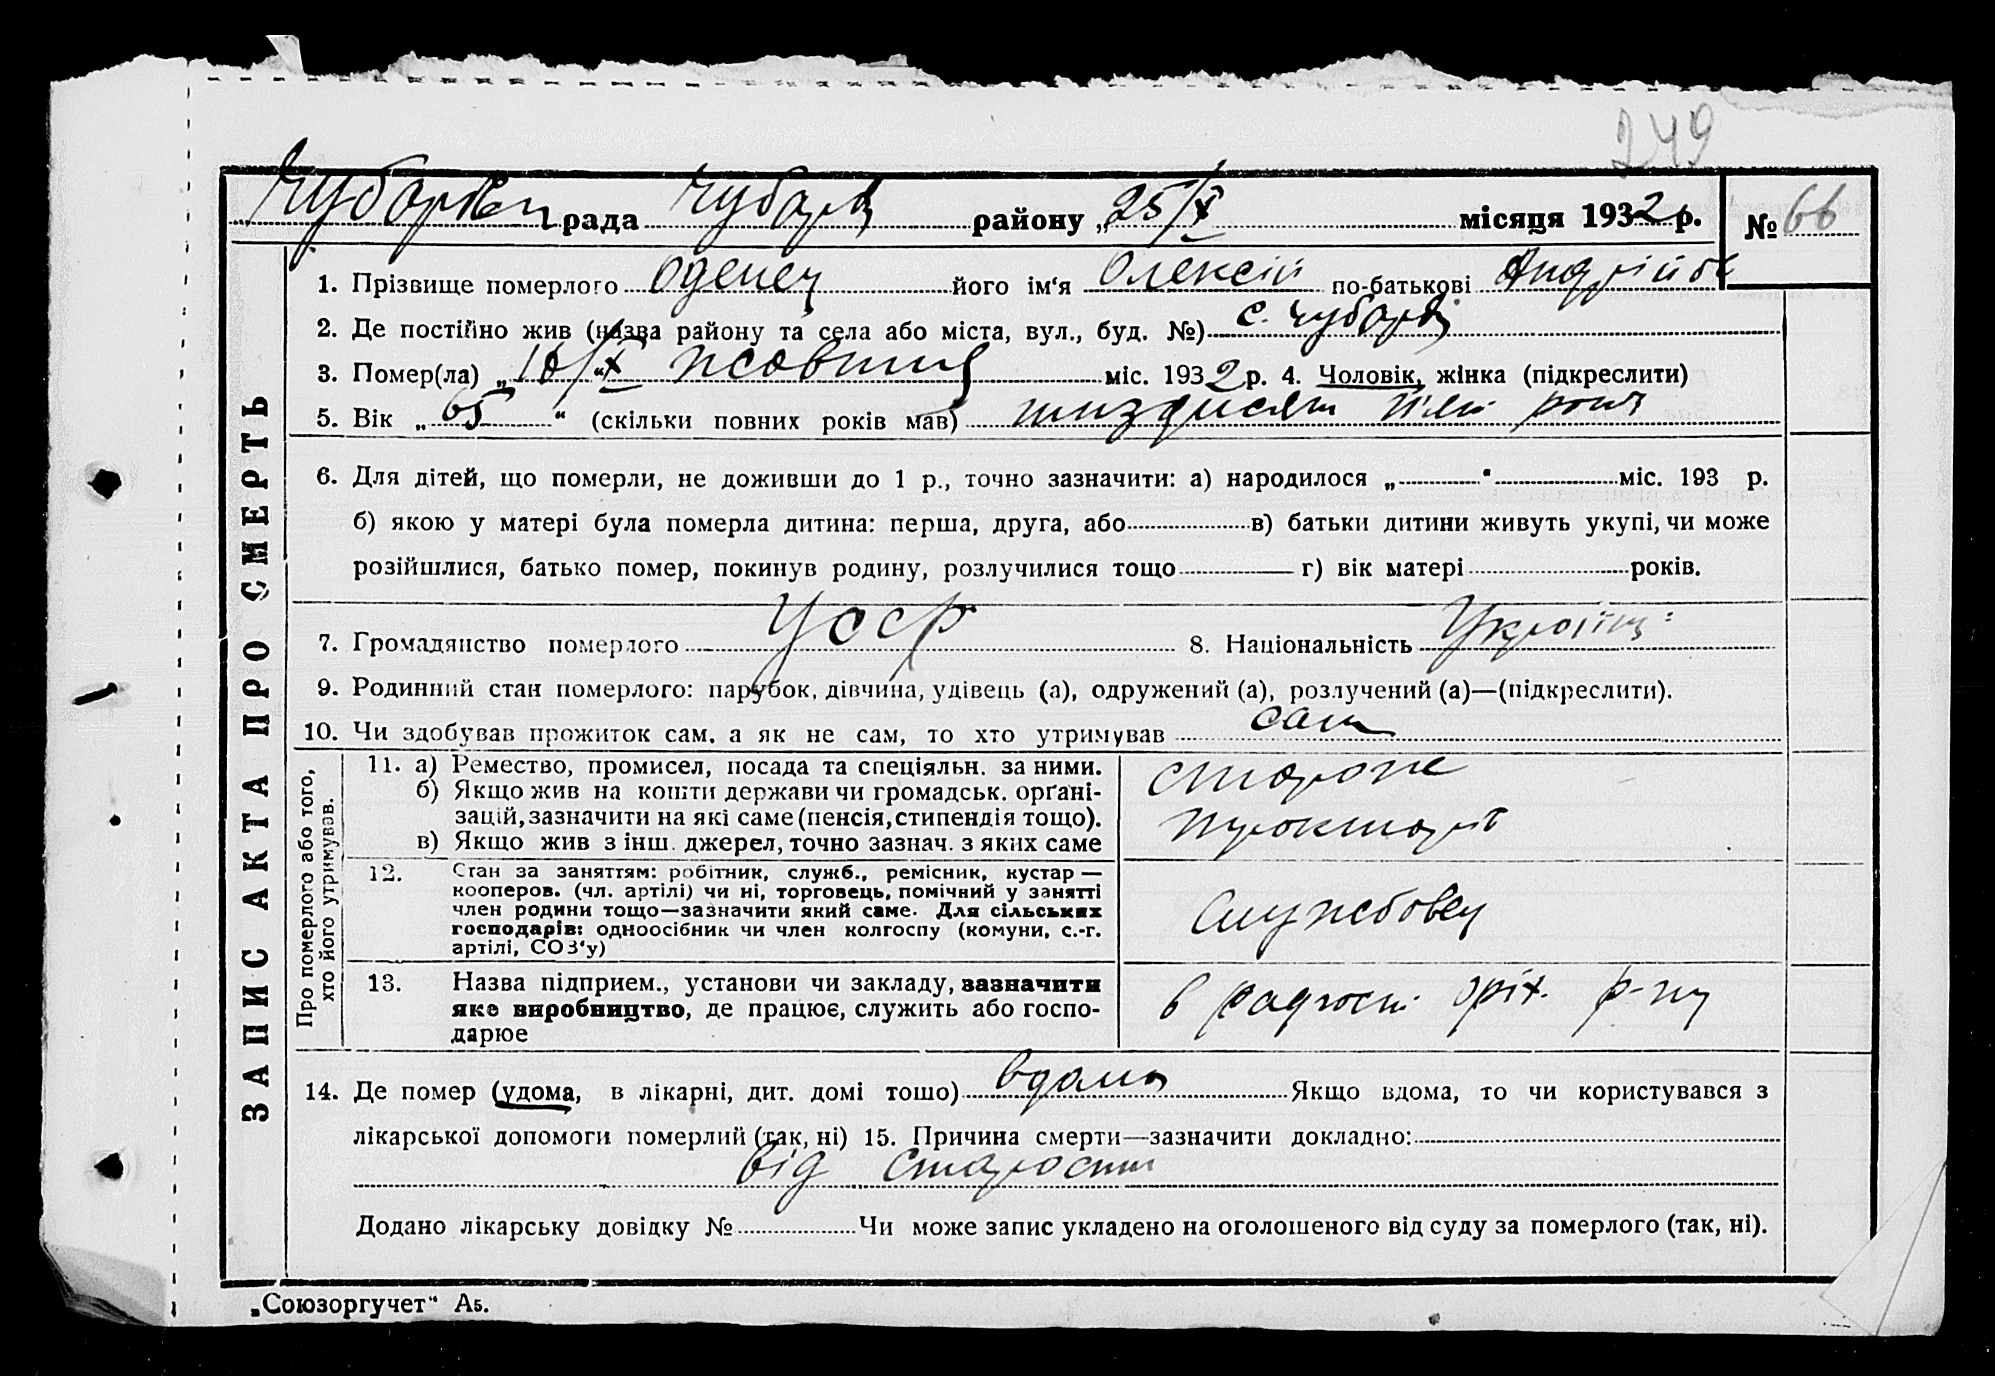 249
Чубарівськ рада Чубарів району „25/X місяця 1932 р. № 66
ЗАПИС АКТА ПРО СМЕРТЬ
1. Прізвище померлого Оденец його ім‘я Олексій по-батькові Андрійов
2. Де постійно жив (назва району та села або міста, вул., буд. №) с. Чубарів
3. Помер(ла) „10/X“ жовтня міс. 1932 р. 4. Чоловік, жінка (підкреслити)
5. Вік „65“ (скільки повних років мав) шиздисят пять років
6. Для дітей, що померли, не доживши до 1 р., точно зазначити: а) народилося „ “ міс. 193 р.
б) якою у матері була померла дитина: перша, друга, або в) батьки дитини живуть укупі, чи може
розійшлися, батько помер, покинув родину, розлучилися тощо г) вік матері років.
7. Громадянство померлого УССР 8. Національність Україн:
9. Родинний стан померлого: парубок, дівчина, удівець (а), одружений (а), розлучений (а)—(підкреслити).
10. Чи здобував прожиток сам, а як не сам, то хто утримував сам
Про померлого або того,
хто його утримував.
11. а) Ремество, промисел, посада та спеціяльн. за ними.
б) Якщо жив на кошти держави чи громадськ. орґані-
зацій, зазначити на які саме (пенсія, стипендія тощо).
в) Якщо жив з інш. джерел, точно зазнач. з яких саме
сторож
12. Стан за заняттям: робітник, служб., ремісник, кустар —
кооперов. (чл. артілі) чи ні, торговець, помічний у занятті
член родини тощо—зазначити який саме. Для сільських
господарів: одноосібник чи член колгоспу (комуни, с.-г.
артілі, СОЗ‘у)
Службовец
13. Назва підприєм., установи чи закладу, зазначити
яке виробництво, де працює, служить або госпо-
дарює
в радгосп: оріх. р-ну
14. Де помер (удома, в лікарні, дит. домі тощо) вдома Якщо вдома, то чи користувався з
лікарської допомоги померлий (так, ні) 15. Причина смерти—зазначити докладно:
від старости
Додано лікарську довідку № Чи може запис укладено на оголошеного від суду за померлого (так, ні).
„Союзоргучет“ А5.